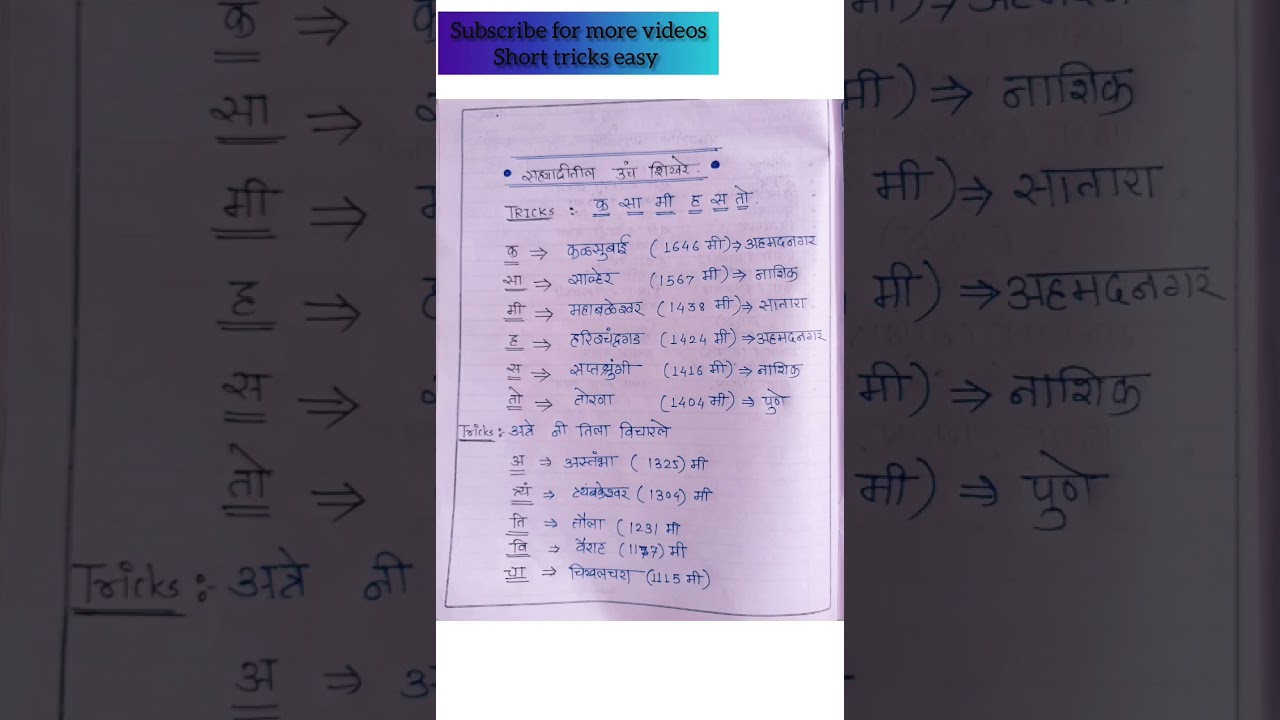 Subscribe for more videos
Short tricks easy
• सह्याद्रीतील उंच शिखरे. •
TRICKS :- क सा मी ह स तो.
क ⇒ कळसुबाई (1646 मी) ⇒ अहमदनगर
सा ⇒ साल्हेर (1567 मी) ⇒ नाशिक
मी ⇒ महाबळेश्वर (1438 मी) ⇒ सातारा
ह ⇒ हरिश्चंद्रगड (1424 मी) ⇒ अहमदनगर
स ⇒ सप्तश्रृंगी (1416 मी) ⇒ नाशिक
तो ⇒ तोरणा (1404 मी) ⇒ पुणे
Tricks :- अत्रे नी तिला विचारले
अ ⇒ अस्तंभा (1325) मी
त्र्यं ⇒ त्र्यंबकेश्वर (1304) मी
ति ⇒ तौला (1231 मी
वि ⇒ वैराट (1177) मी
चा ⇒ चिखलदरा (1115 मी)